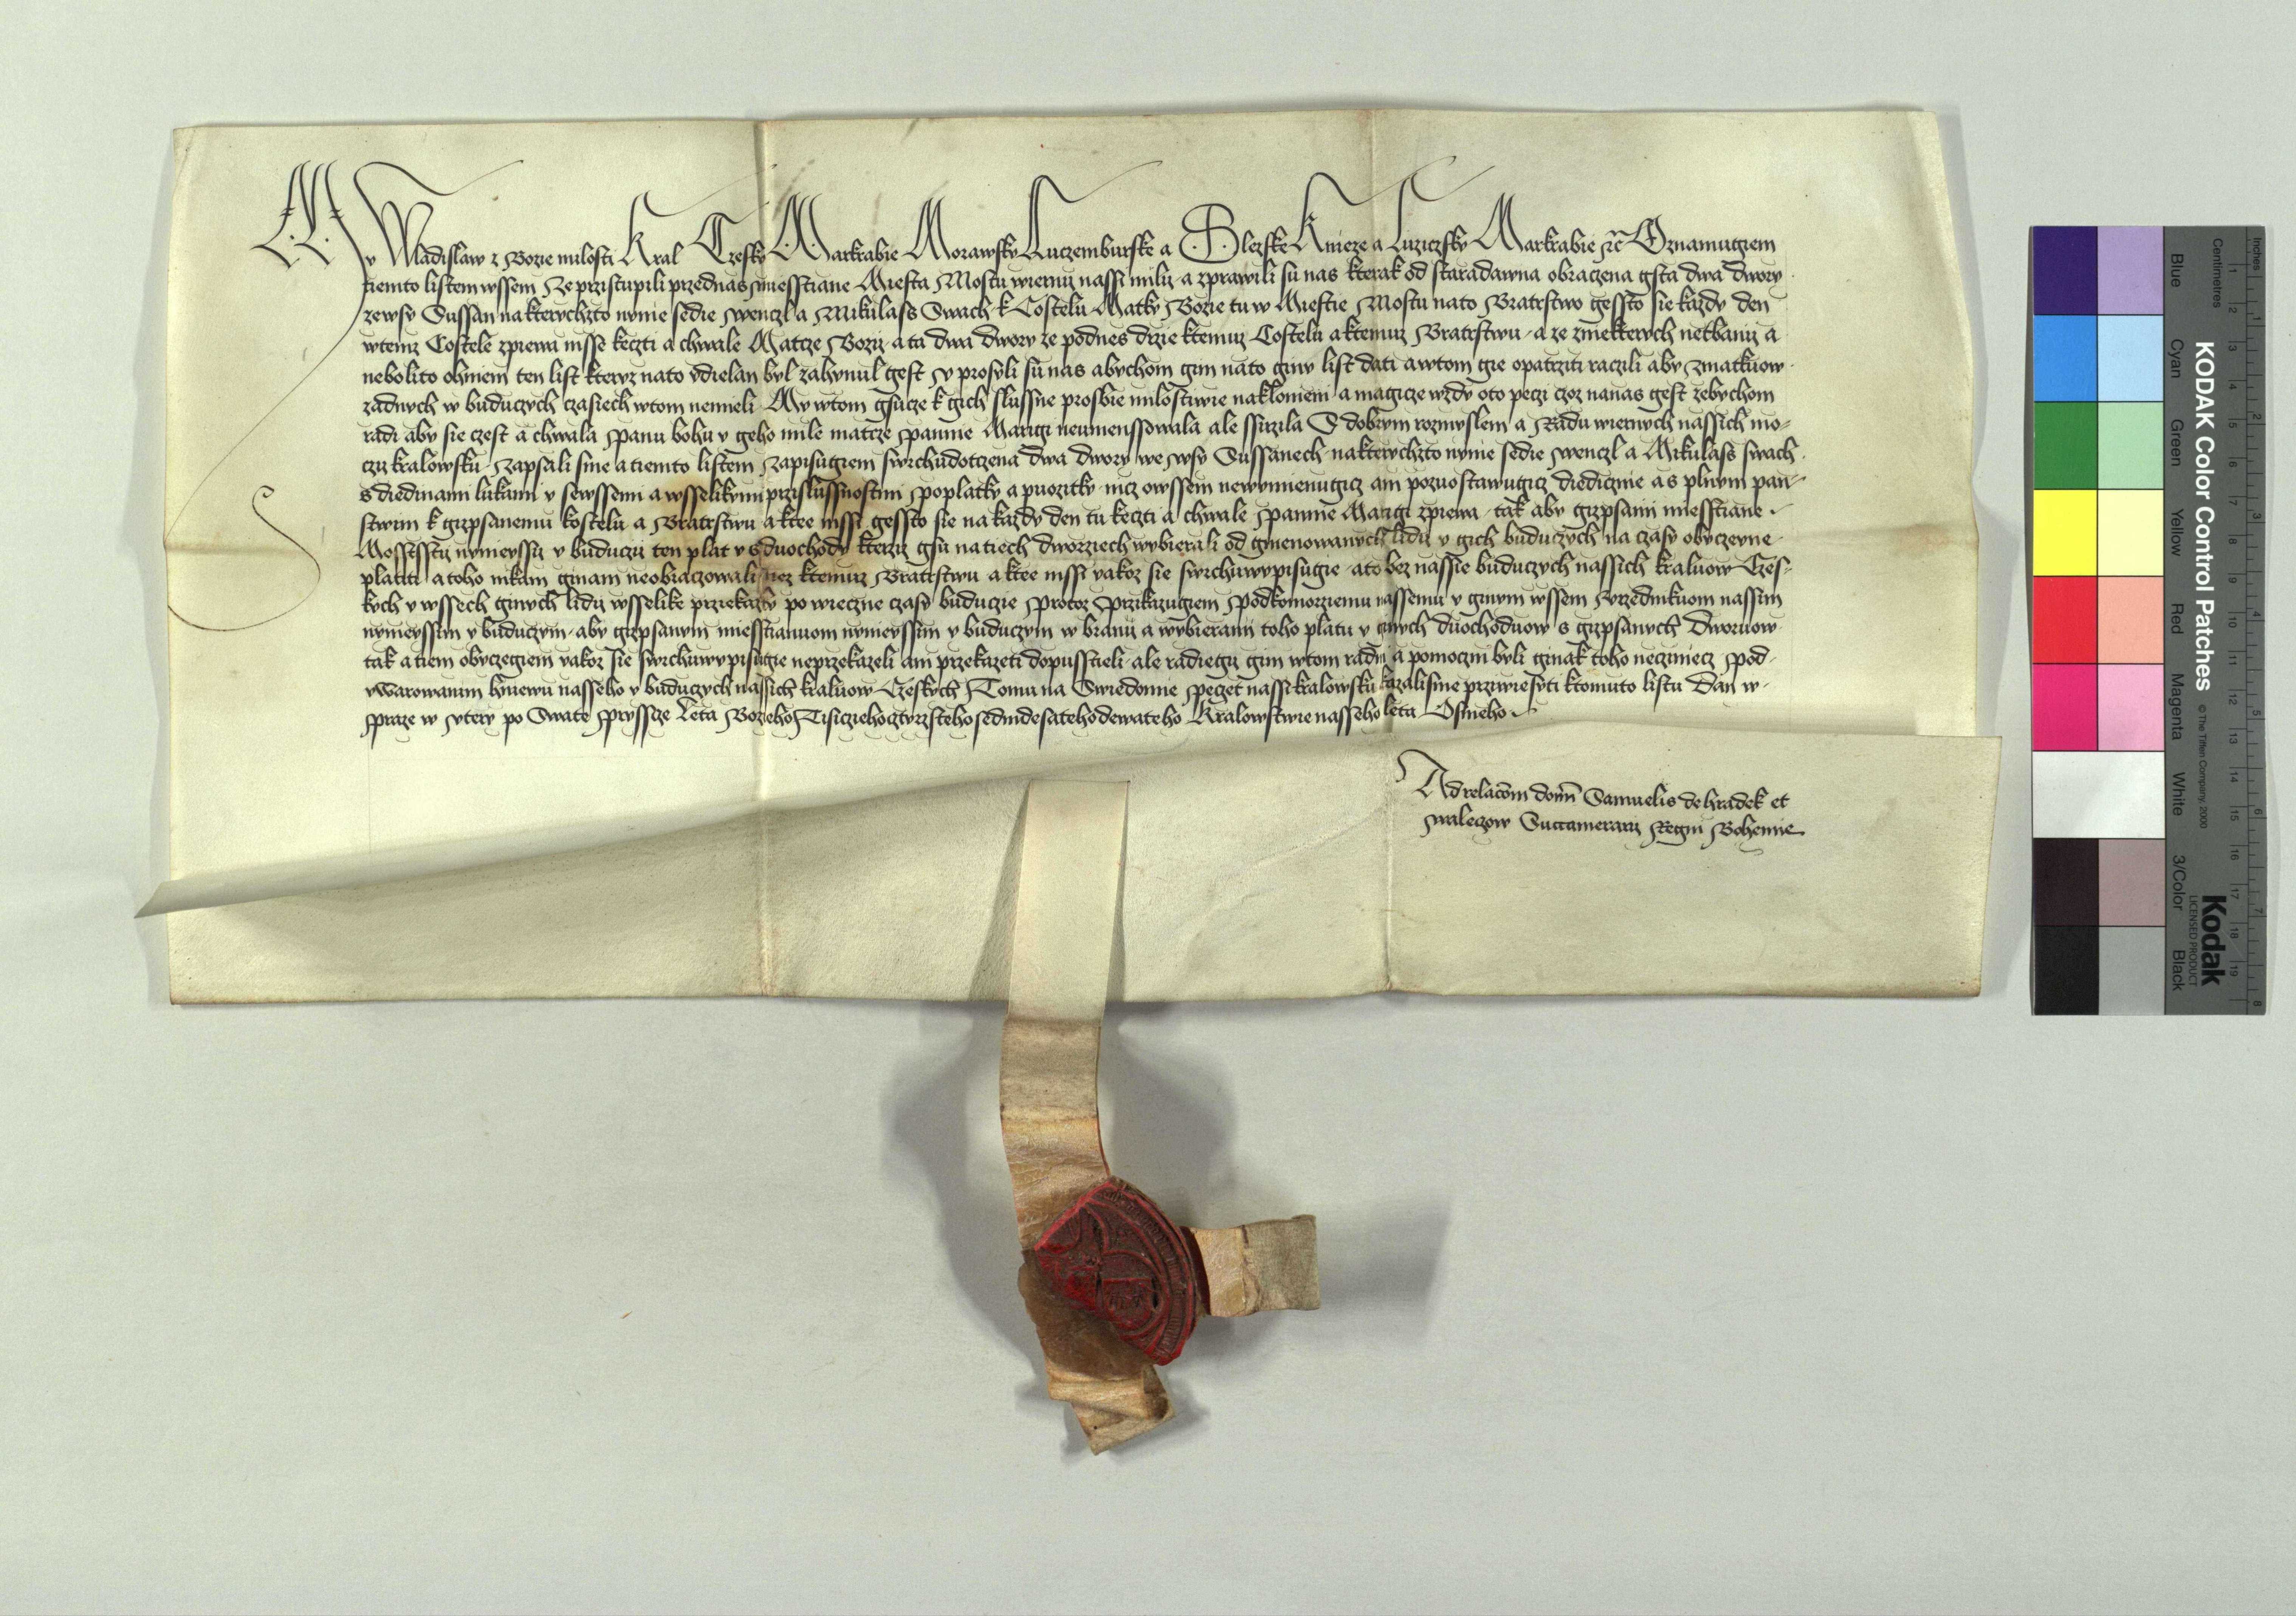 My Wladislaw z Bozie milosti Kral Czesky Markrabie Morawsky Luczemburske a Slezske Knieze a Luziczsky Markrabie zc Oznamugiem
tiemto listem wssem ze przistupili przednas miesstiane Miesta Mostu wierny nassi mily a zprawili su nas kterak od staradawna obraczena gsta dwa dwory
zewsy Sussan na kterychzto nynie sedie wenczl a Mikulass Swach k Costelu Matky Bozie tu w Miestie Mostu nato Bratrstwo gessto sie kazdy den
wtemz Costele zpiewa msse keczti a chwale Matcze Bozy a ta dwa dwory ze podnes drzie ktemuz Costelu a ktemuz Bratrstwu a ze zniekterych netbany a
nebolito ohniem ten list kteryz nato vdielan byl zahynul gest y prosyli su nas abychom gim nato giny list dati a wtom gie opatrziti raczili aby zmatkuow
zadnych w buduczych czasiech wtom nemieli My wtom gsucze k gich slussne prosbie milostiwie nakloniem a magicze wzdy oto peczi czoz nanas gest zebychom
radi aby sie czest a chwala panu bohu y geho mile matcze pannie Marigi neumenssowala ale ssirzila S dobrym rozmyslem a Radu wiernych nassich mo-
czy kralowsku zapsali sme a tiemto listem zapisugiem swrchudotczena dwa dwory we wsy Sussanech na kterychzto nynie sedie wenczl a Mikulass swach
s diedinami lukami y sewssemi a wsselikymi przislussnostmi poplatky a puozitky nicz owssem newymienugicz ani pozuostawugicz diediczne a s plnym pan-
stwim k gizpsanemu kostelu a Bratrstwu a ktee mssi gessto sie na kazdy den tu keczti a chwale pannie Marigi zpiewa tak aby gizpsani miesstiane
Mosstssty nynieyssy y buduczy ten plat y s duochody kterzy gsu na tiech dworziech wybierali od gmenowanych lidy y gich buduczych na czasy obyczeyne
platiti a toho nikam ginam neobraczowali nez ktemuz Bratrstwu a ktee mssi yakoz sie swrchuwypisugie ato bez nassie buduczych nassich kraluow Czes-
kych y wssech ginych lidy wsselike prziekazky po wieczne czasy buduczie Protoz przikazugiem podkomorziemu nassemu y ginym wssem vrzednikuom nassim
nynieyssim y buduczym aby gizpsanym miesstianuom nynieyssim y buduczym w brany a wybierani toho platu y ginych duochoduow s gizpsanych Dworuow
tak a tiem obyczegiem yakoz sie swrchuwypisugie neprzekazeli ani przekazeti dopusstieli ale radiegy gim wtom radni a pomoczni byli ginak toho neczniecz pod
vwarowanim hniewu nasseho y buduczych nassich kraluow Czeskych Tomu na Swiedomie peczet nassi kralowsku kazali sme prziwiesyti ktomuto listu Dan w
praze w vtery po Swate pryssce Leta Bozieho Tisiczieho cztyrzsteho sedmdesatehodewateho Kralowstwie nasseho leta Osmeho
Ad relacom domi Samuelis de hradek et
waleczow Succamerary Regni Bohemie
KODAK Color Control Patches
© The Tiffen Company, 2000
Kodak
LICENSED PRODUCT
Blue
Cyan
Green
Yellow
Red
Magenta
White
3/Color
Black
Centimetres
Inches